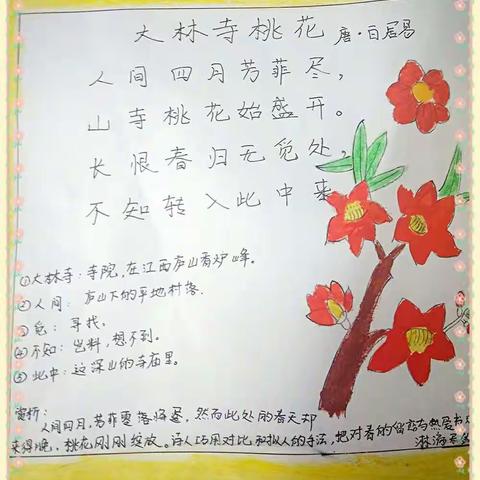 大林寺桃花 唐·白居易
人间四月芳菲尽，
山寺桃花始盛开。
长恨春归无觅处，
不知转入此中来
①大林寺：寺院，在江西庐山香炉峰。
②人间：庐山下的平地村落.
③觅：寻找。
④不知：岂料，想不到。
⑤此中：这深山的寺庙里。
赏析：
人间四月，芳菲零落将尽，然而此处的春天却
来得晚，桃花刚刚绽放。诗人巧用对比和拟人的手法，把对春的
淋漓尽